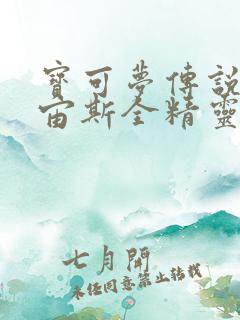 寶可夢傳說
宙斯全精靈
七月開
未經同意禁止轉載